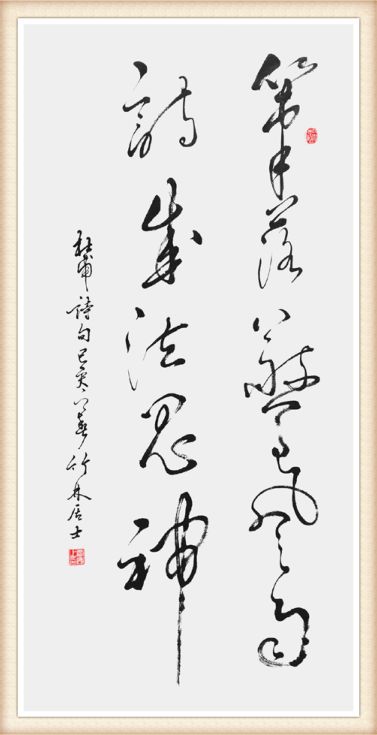 筆落驚風雨
詩成泣鬼神
杜甫詩句己亥之春竹林居士